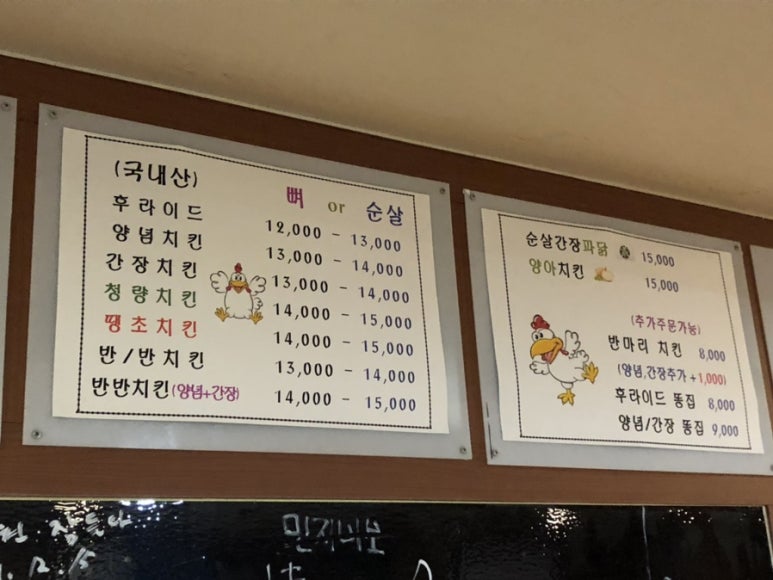 (국내산) 뼈 or 순살
후라이드 12,000 - 13,000
양념치킨 13,000 - 14,000
간장치킨 13,000 - 14,000
청량치킨 14,000 - 15,000
땡초치킨 14,000 - 15,000
반/반치킨 13,000 - 14,000
반반치킨(양념+간장) 14,000 - 15,000
순살간장파닭 15,000
양아치킨 15,000
(추가주문가능)
반마리 치킨 8,000
(양념,간장추가+1,000)
후라이드 똥집 8,000
양념/간장 똥집 9,000